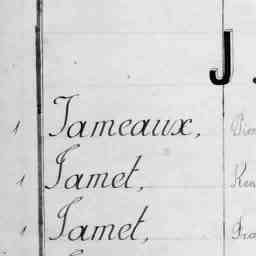 J.
1 Jameaux,
1 Jamet, Ren
1 Jamet,